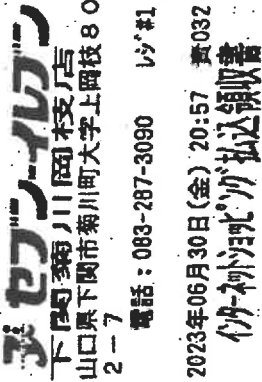 セブン-イレブン
下関菊川岡枝店
山口県下関市菊川町大字上岡枝80
2-7
電話：083-287-3090 レジ#1
2023年06月30日(金) 20:57 責032
インターネットショッピング払込領収書